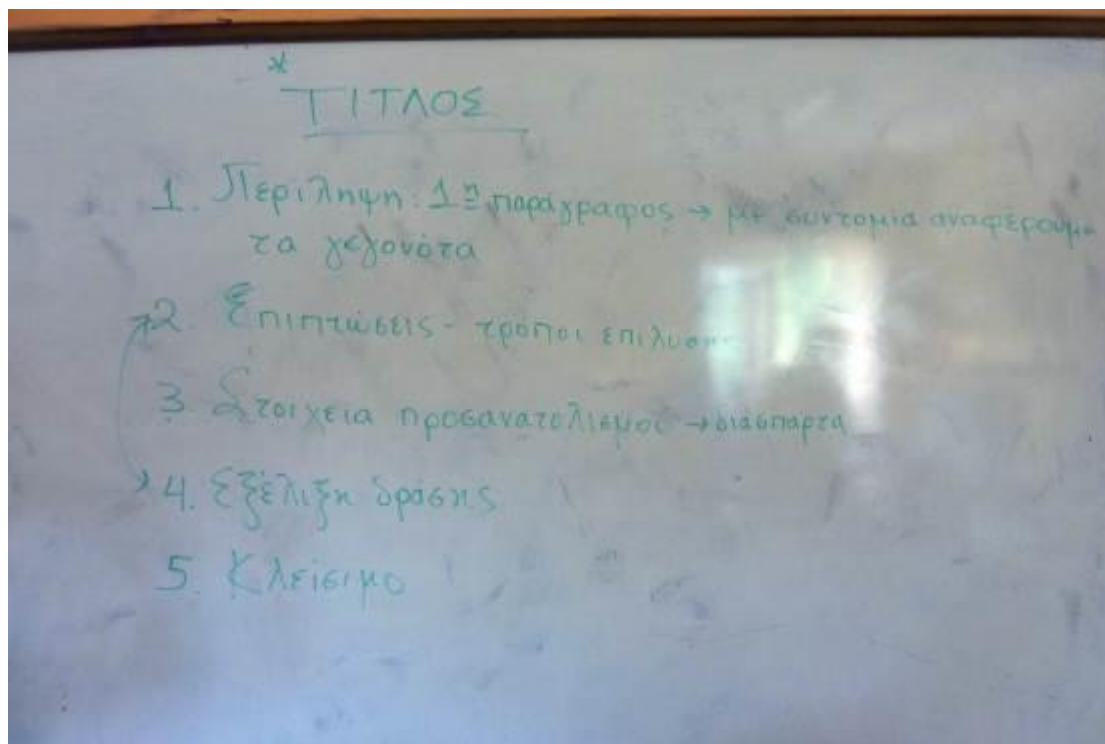 *
ΤΙΤΛΟΣ
1. Περίληψη: 1η παράγραφος → με συντομία αναφέρουμε
τα γεγονότα
2. Επιπτώσεις - τρόποι
3. Στοιχεία προσανατολισμού → διάσπαρτα
4. Εξέλιξη δράσης
5. Κλείσιμο